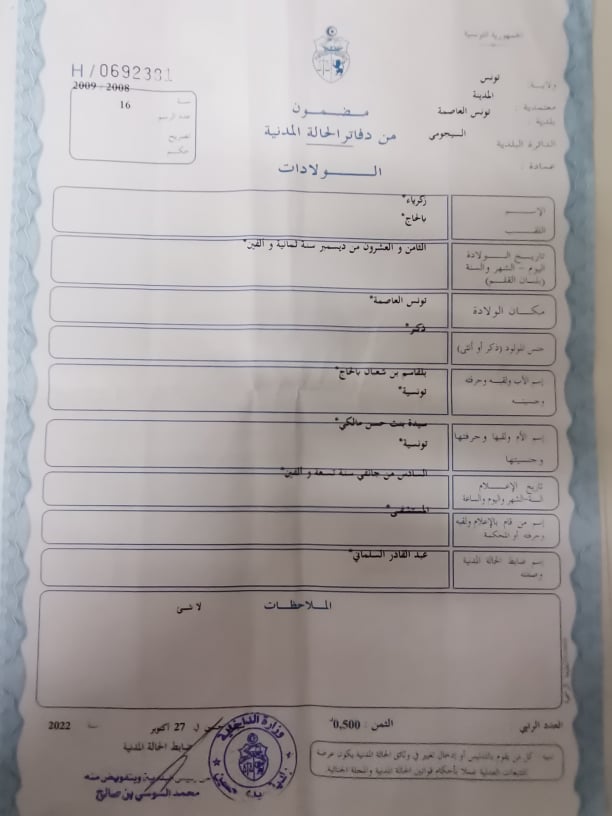 الجمهورية التونسية
H/0692331
ولاية: تونس
معتمدية: المدينة
بلدية: تونس العاصمة
الدائرة البلدية: السيجومي
عمادة:
سنة 2008 - 2009
عدد الرسم 16
تصريح
حكم
مضمون
من دفاتر الحالة المدنية
الولادات
الإسم زكرياء*
اللقب بالحاج*
تاريخ الولادة الثامن و العشرون من ديسمبر سنة ثمانية و ألفين*
اليوم - الشهر والسنة
(بلسان القلم)
مكان الولادة تونس العاصمة*
جنس المولود (ذكر أو أنثى) ذكر*
إسم الأب ولقبه وحرفته بلقاسم بن شعبان بالحاج*
وجنسيته تونسية*
إسم الأم ولقبها وحرفتها سيدة بنت حسن مالكي*
وجنسيتها تونسية*
تاريخ الإعلام السادس من جانفي سنة تسعة و ألفين*
السنة-الشهر واليوم والساعة
إسم من قام بالإعلام ولقبه المستشفى*
وحرفته أو المحكمة
إسم ضابط الحالة المدنية عبد القادر السلماني*
وصفته
الملاحظات لا شئ
العدد الرتبي الثمن : 0,500
في 27 أكتوبر سنة 2022
ضابط الحالة المدنية
تنبيه كل من يقوم بالتدليس أو إدخال تغيير في وثائق الحالة المدنية يكون عرضة
للتتبعات العدلية عملا بأحكام قوانين الحالة المدنية والمجلة الجنائية.
وزارة الداخلية
وبتفويض منه
محمد السوسي بن صالح